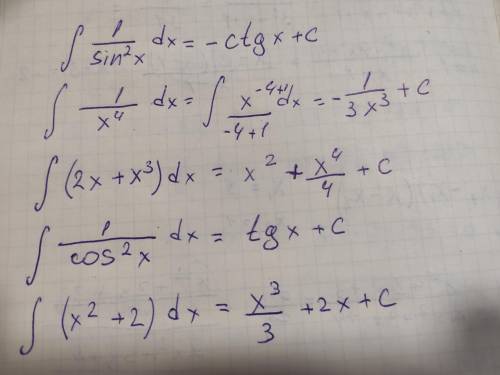 ∫ 1/sin²x dx = -ctgx + C
∫ 1/x⁴ dx = ∫ x⁻⁴⁺¹/-4+1 dx = -1/3x³ + C
∫ (2x + x³) dx = x² + x⁴/4 + C
∫ 1/cos²x dx = tgx + C
∫ (x² + 2) dx = x³/3 + 2x + C